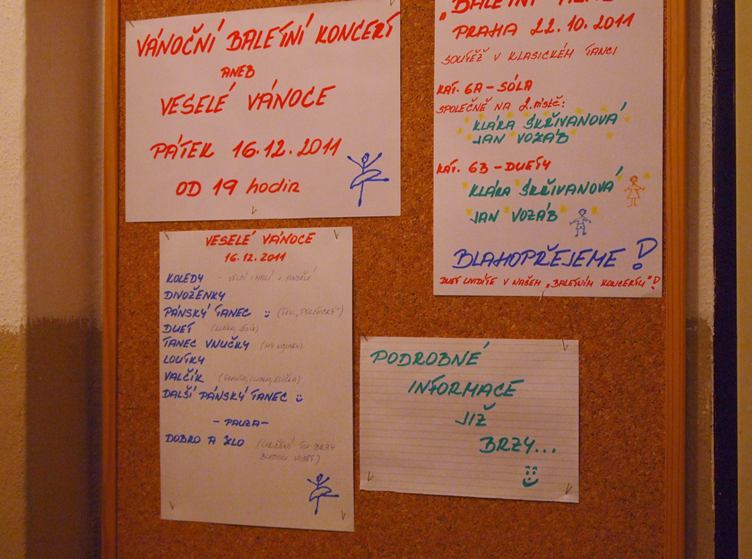 VÁNOČNÍ BALETNÍ KONCERT
ANEB
VESELÉ VÁNOCE
PÁTEK 16.12.2011
OD 19 hodin
PRAHA 22.10.2011
SOUTĚŽ V KLASICKÉM TANCI
KAT. 6A - SÓLA
SPOLEČNĚ NA 2. MÍSTĚ:
KLÁRA SKŘIVANOVÁ
JAN VOZÁB
KAT. 6B - DUETY
KLÁRA SKŘIVANOVÁ
JAN VOZÁB
BLAHOPŘEJEME!
DUET UVIDÍTE V NAŠEM „BALETNÍM KONCERTU"!
VESELÉ VÁNOCE
16.12.2011
KOLEDY
DIVOŽENKY
PÁNSKÝ TANEC
DUET
TANEC VNUČKY
LOUTKY
VALČÍK
DALŠÍ PÁNSKÝ TANEC
- PAUZA -
DOBRO A ZLO
PODROBNÉ
INFORMACE
JIŽ
BRZY...